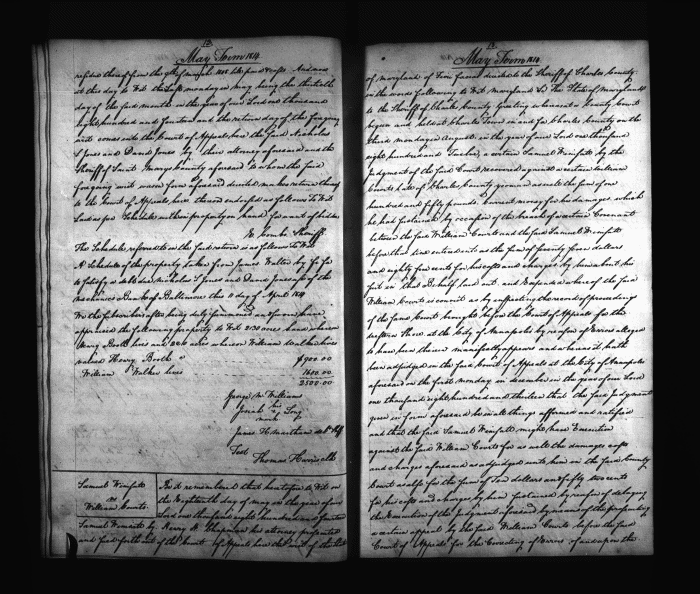 May Term 1814
at this day to Wit the last monday in May being the thirtieth
day of the said month in the year of our Lord one thousand
eight hundred and fourteen and the return day of the foregoing
writ comes into the Court of Appeals here the said Nicholas
L Jones and David Jones by their attorney aforesaid and the
Sheriff of Saint Marys County aforesaid to whom the said
foregoing writ was in form aforesaid directed makes return thereof
to the Court of Appeals here thereon endorsed as follows To Wit
Combs Sheriff
The Schedule referred to in the said return is as follows To Wit
A Schedule of the property taken from James Walter by fi fa
to satisfy a debt due Nicholas L Jones and David Jones use of the
Mechanics Bank of Baltimore this 11 day of April 1814
We the subscribers after being duly summoned and sworn have
appraised the following property to Wit 213 acres land whereon
Henry Booth lives and 226 acres whereon William Walker lives
valued Henry Booth $900.00
William Walker lives 1600.00
2500.00
George W Williams
his
Josiah x Long
mark
James H
Test
Thomas Harris clk
Samuel Wimsatt
vs
William Courts
Be it remembered that heretofore to Wit on
the Eighteenth day of may in the year of our
Lord one thousand eight hundred and fourteen
Samuel Wimsatt by Henry H Chapman his attorney prosecuted
and sued forth out of the Court of Appeals here the writ of the State
May Term 1814
of Maryland of directed to the Sheriff of Charles County
in the words following to Wit Maryland Sct The State of Maryland
to the Sheriff of Charles County Greeting whereas at a County Court
begun and held at Charles Town in and for Charles County on the
third monday in August in the year of our Lord one thousand
eight hundred and Twelve a certain Samuel Wimsatt by the
Judgment of the said Court recovered against a certain William
Courts late of Charles County yeoman as well the sum of one
hundred and fifty pounds Current money for his damages which
he had sustained by occasion of the breach of a certain Covenant
between the said William Courts and the said Samuel Wimsatt
before that time entered into as the sum of twenty seven dollars
and eighty five cents for his costs and charges by him about his
suit in that behalf laid out and expended whereof the said
William Courts is convict as by inspecting the record of proceeding
of the said Court brought before the Court of Appeals for the
western Shore at the City of Annapolis by reason of Errors alleged
to have been therein manifestly appears and whereas it hath
been adjudged in the said Court of Appeals at the City of Annapolis
aforesaid on the first monday in december in the year of our Lord
one thousand eight hundred and thirteen that the said Judgment
given in form aforesaid be in all things affirmed and ratified
and that the said Samuel Wimsatt might have Execution
against the said William Courts for as well the damages costs
and charges aforesaid as adjudged unto him in the said County
Court as also for the sum of Ten dollars and fifty two cents
for his costs and charges by him sustained by reason of delaying
the Execution of the Judgment aforesaid by means of the prosecuting
a certain appeal by the said William Courts before the said
Court of Appeals for the Correcting of Errors of and upon the